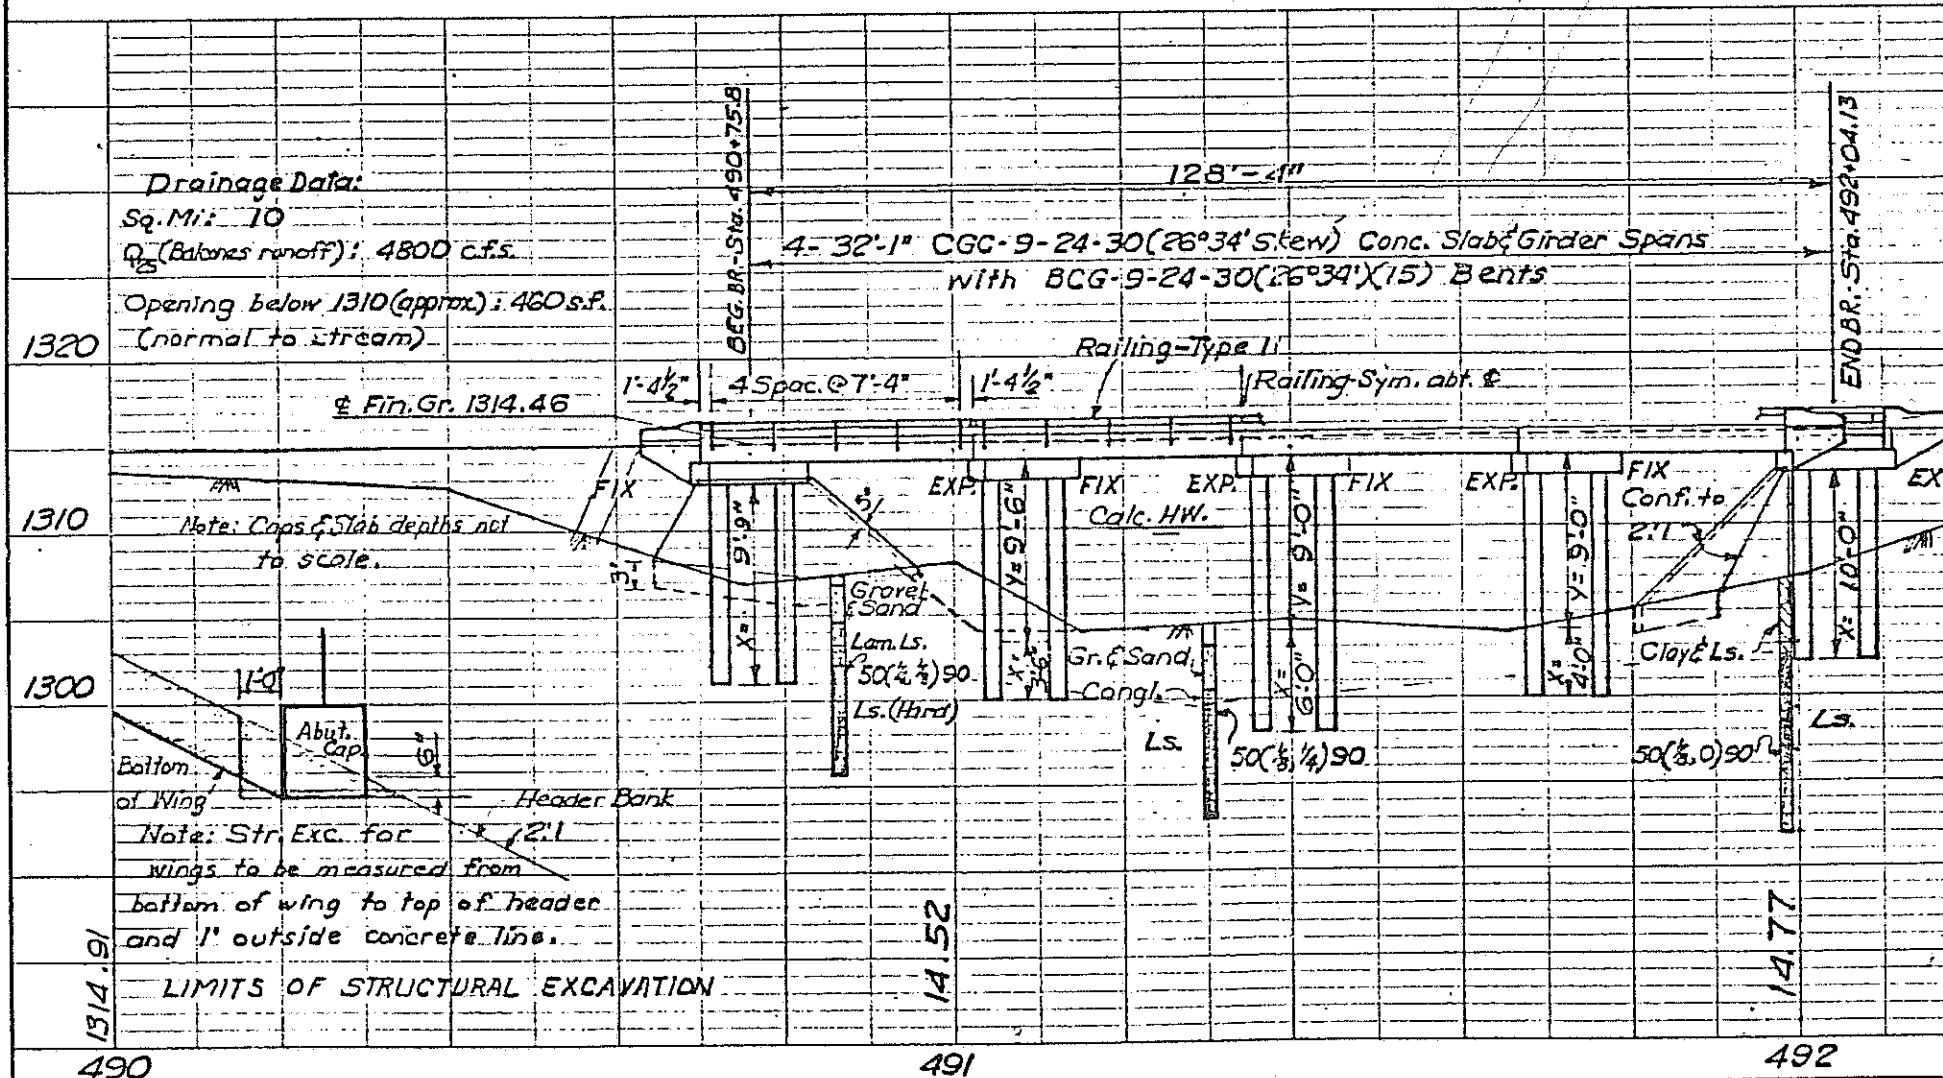 Drainage Data:
Sq. Mi: 10
Q25 (Balcones runoff): 4800 c.f.s.
Opening below 1310 (approx): 460 s.f.
(normal to stream)
BEG. BR.-Sta. 490+75.8
128'-4"
4- 32'-1" CGC-9-24-30(26°34' Skew) Conc. Slab & Girder Spans
with BCG-9-24-30(26°34')(15) Bents
END BR.-Sta. 492+04.13
1320
1310
1300
Railing-Type 11
1'-4½" 4 Spac. @ 7'-4" 1'-4½"
Railing-Sym. abt. ℄
℄ Fin. Gr. 1314.46
FIX
EXP. FIX
EXP. FIX
EXP. FIX
EX
Calc. HW.
Conf. to
2:1
Note: Caps & Slab depths not
to scale.
3'
5'
X= 9'-9"
Y= 9'-6"
X= 3'-6"
Y= 9'-0"
X= 6'-0"
Y= 9'-0"
X= 4'-0"
X= 10'-0"
Gravel
& Sand
Lam. Ls.
50(¼,½)90
Ls. (Hard)
Gr. & Sand
Congl.
Ls.
50(⅛,¼)90
Clay & Ls.
Ls.
50(⅛,0)90
1'-0
Abut.
Cap
6"
Bottom
of Wing
Header Bank
2:1
Note: Str. Exc. for
wings to be measured from
bottom of wing to top of header
and 1' outside concrete line.
LIMITS OF STRUCTURAL EXCAVATION
1314.91
14.52
14.77
490
491
492